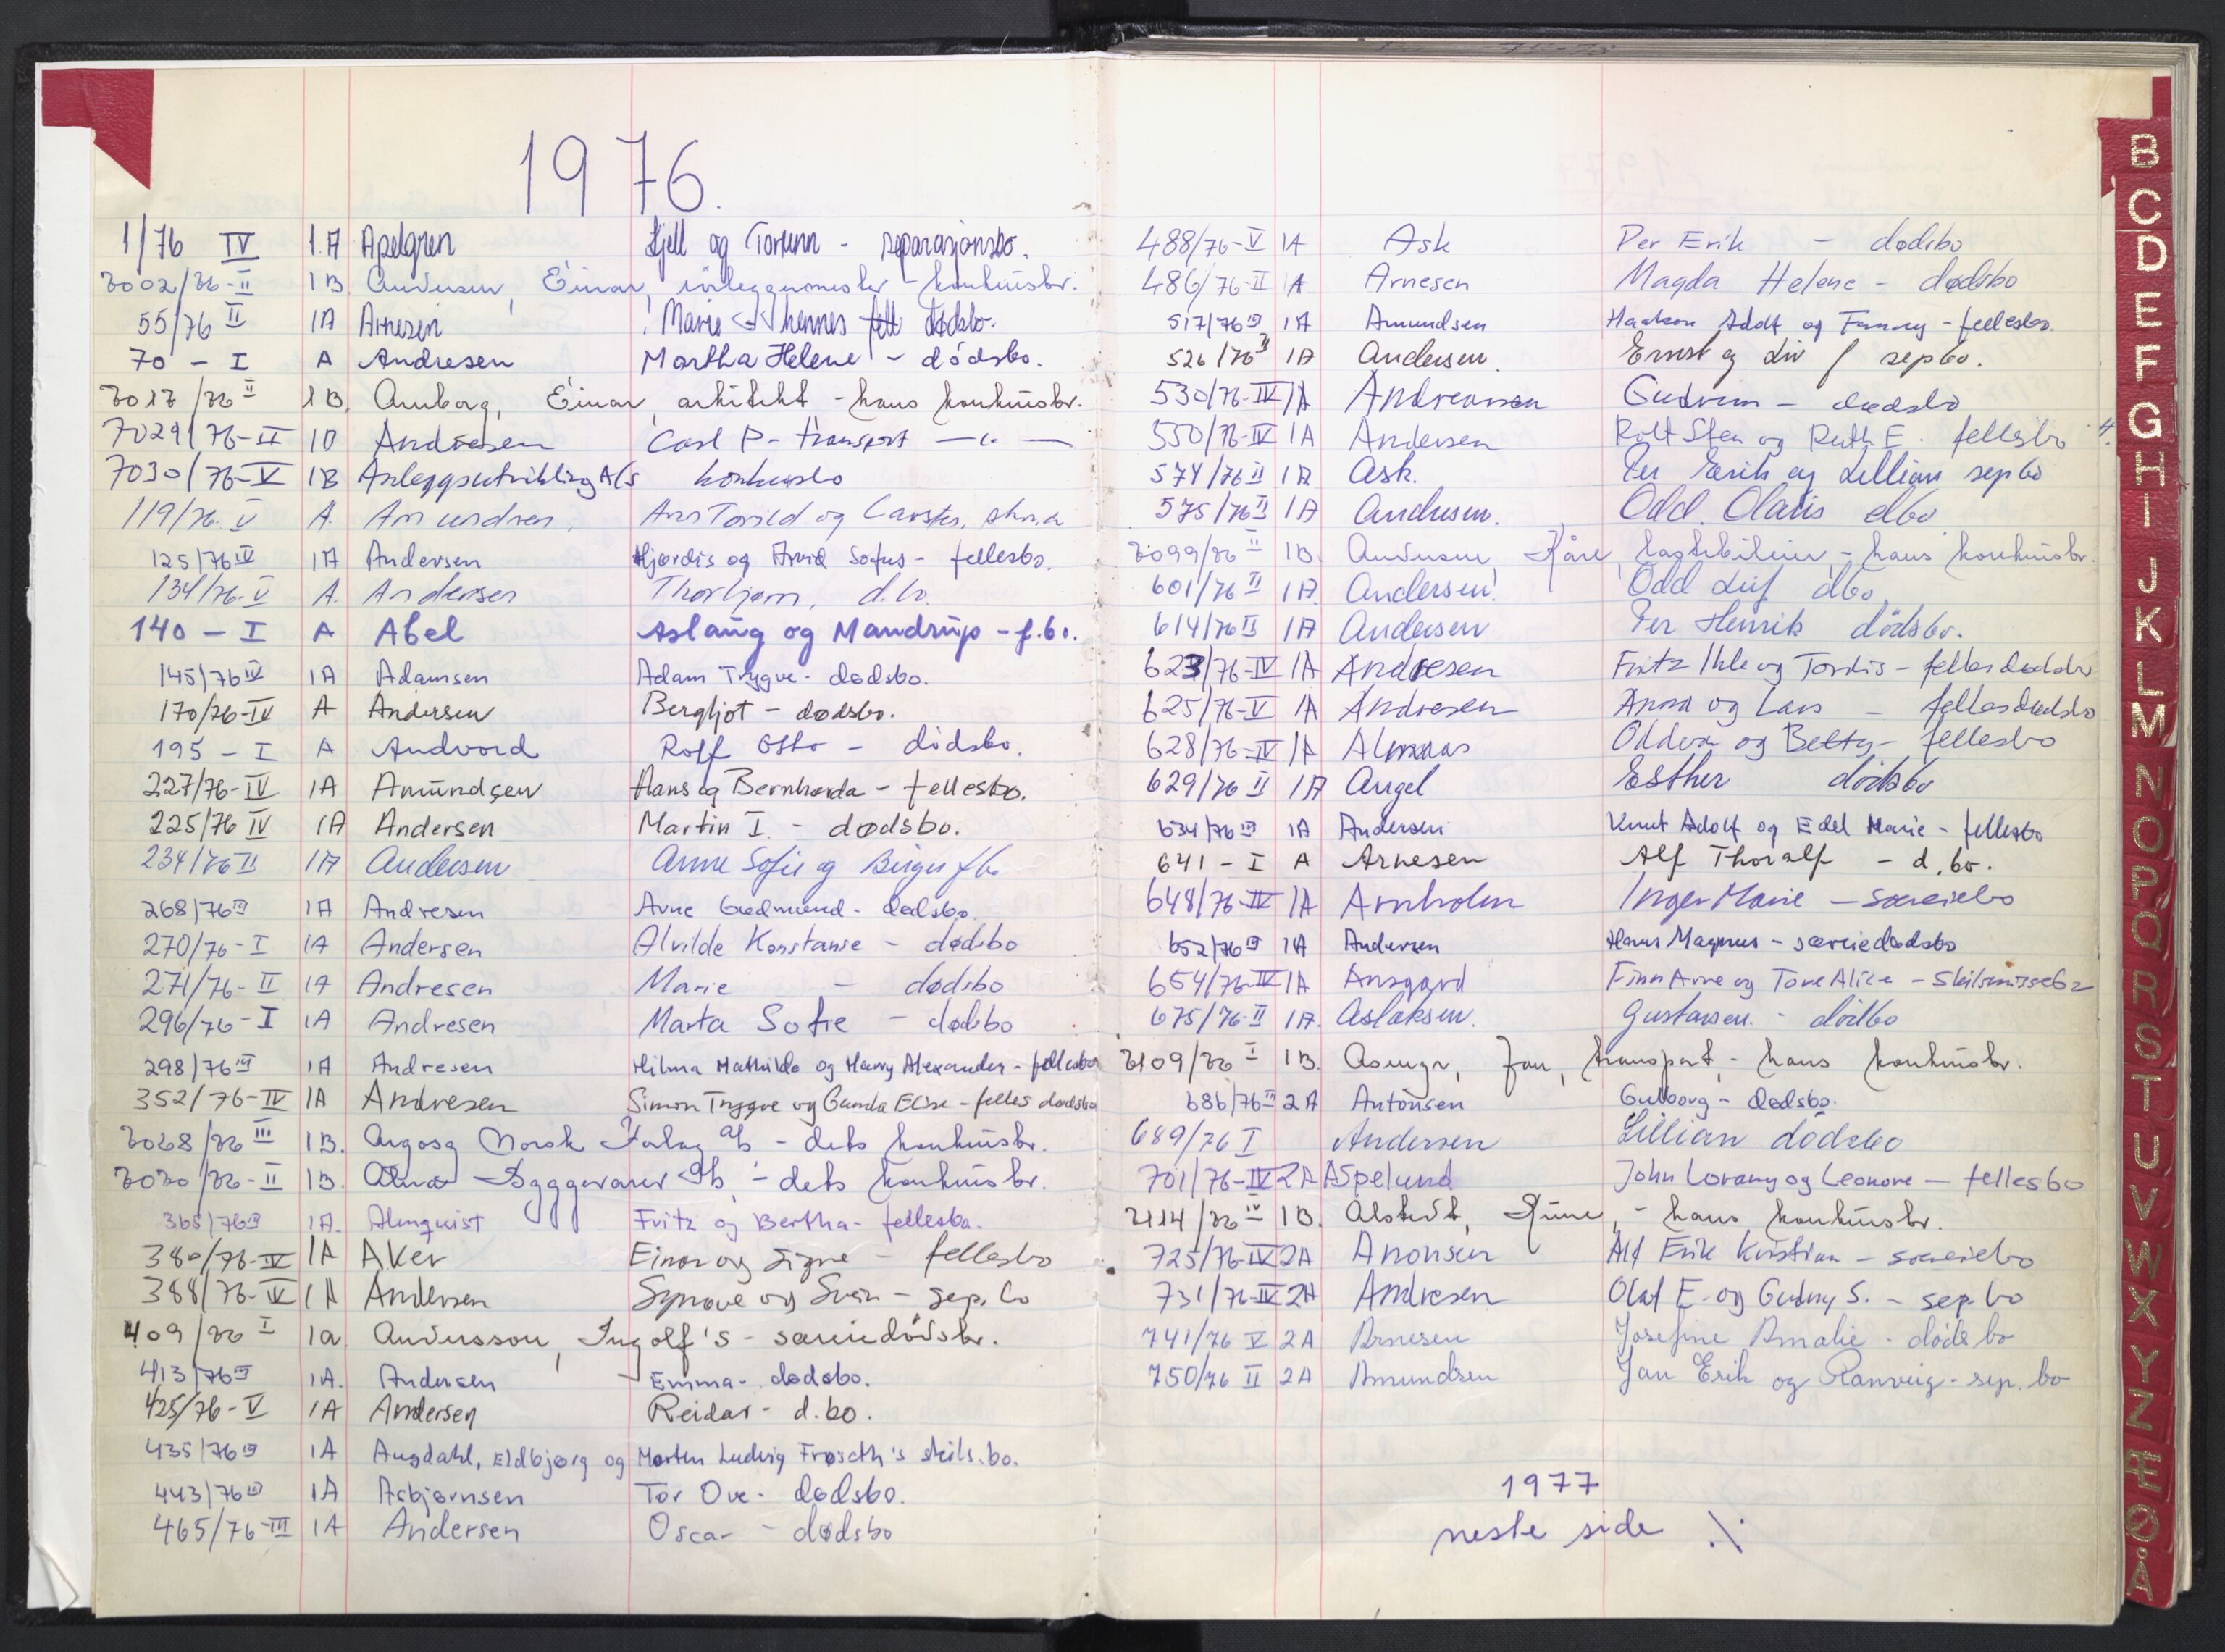 1976.
1/76 IV 1.A Apelgren Kjell og Torunn - separasjonsbo.
7002/76-II 1B Andersen, Einar, rørleggermester - konkursbo.
55/76 II 1A Arnesen Marie hennes dødsbo.
70 - I A Andresen Martha Helene - dödsbo.
7017/76 II 1B. Amborg, Einar, arkitekt - hans konkursbo.
7029/76-II 1B Andresen Carl P- transport - " -
7030/76-V 1B Anleggsutvikling A/s konkursbo
119/76. V A. Amundsen, Ann Torild og Carsten,
125/76 IV 1A Andersen Hjørdis og Arvid Sofus - fellesbo.
134/76. V A. Andersen Thorbjørn, d.bo.
140 - I A Abel Aslaug og Mandrup - f.bo.
145/76 IV 1A Adamsen Adam Trygve - dødsbo.
170/76-IV A Andersen Bergljot - dødsbo.
195 - I A Andvord Rolf Otto - dödsbo.
227/76-IV 1A Amundsen Hans og Bernharda - fellesbo.
225/76 IV 1A Andersen Martin I. - dødsbo.
234/76 II 1A Andersen Anne Sofie og Birger fbo
268/76 III 1A Andresen Arne Gudmund - dødsbo.
270/76 - I 1A Andersen Alvilde Konstanse - dødsbo
271/76 - II 1A Andresen Marie - dødsbo
296/76 - I 1A Andresen Marta Sofie - dødsbo
298/76 III 1A Andresen Hilma Mathilde og Harry Alexander - fellesbo
352/76-IV 1A Andresen Simon Trygve og Gunda Elise - felles dødsbo
7068/76 III 1B. Argosy Norsk Forlag A/s - dets konkursbo.
7070/76-II 1B. Alna Byggevarer A/s - dets konkursbo.
365/76 III 1A. Almquist Fritz og Bertha - fellesbo.
380/76-IV 1A Aker Einar og Signe - fellesbo
388/76-IV 1A Andersen Synøve og Svein - sep. bo
409/76 I 1a. Andersson, Ingolf's - særeiedødsbo.
413/76 III 1A. Andersen Emma - dødsbo.
425/76 - V 1A Andersen Reidar - d.bo.
435/76 III 1A Augdahl, Eldbjørg og Morten Ludvig Frøseth's skils.bo.
443/76 III 1A Asbjørnsen Tor Ove - dødsbo.
465/76-III 1A Andersen Oscar - dødsbo
488/76-V 1A Ask Per Erik - dødsbo
486/76-II 1A Arnesen Magda Helene - dødsbo
517/76 III 1A Amundsen Haakon Adolf og Fanny - fellesbo.
526/76 II 1A Andersen. Ernst og Liv sepbo.
530/76-IV 1A Andreassen Gudrun - dødsbo
550/76-IV 1A Andersen Rolf Sten og Ruth E. fellesbo
574/76 II 1A Ask. Per Erik og Lillian sepbo
575/76 II 1A Andersen. Odd Olavs dbo
7099/76 II 1B. Andersen, Kåre, lastebileier, - hans konkursbo.
601/76 II 1A. Andersen Odd Leif dbo
614/76 II 1A Andersen Per Henrik dödsbo.
623/76-IV 1A Andresen Fritz Ihle og Tordis - felles dødsbo
625/76-V 1A Andresen Anna og Lars - felles dødsbo
628/76-IV 1A Almaas Oddvar og Betty - fellesbo
629/76 II 1A Angel Esther dödsbo
634/76 III 1A Andersen Knut Adolf og Edel Marie - fellesbo
641 - I A Arnesen Alf Thoralf - d.bo.
648/76-IV 1A Arnholm Inger Marie - særeiebo
652/76 III 1A Andersen Hans Magnus - særeiedødsbo
654/76-IV 1A Ansgard Finn Arve og Tove Alice - Skilsmissebo
675/76-II 1A. Aslaksen. Gustavsen. - dödbo
7109/76 I 1B. Asmyr, Jan, transport, - hans konkursbo.
686/76 III 2A Antonsen Gulborg - dødsbo.
689/76 I Andersen Lillian dödsbo
701/76-IV 2A Aspelund John Lorang og Leonore - fellesbo
7114/76 IV 1B. Alstedt, Rune, - hans konkursbo.
725/76-IV 2A Aronsen Alf Erik Kristian - særeiebo
731/76-IV 2A Andresen Olaf E. og Gudny S. - sep. bo
741/76 V 2A Arnesen Josefine Amalie - döds bo
750/76 II 2A Amundsen Jan Erik og Ranveig - sep. bo
1977
neste side ./.
B
C
D
E
F
G
H
I
J
K
L
M
N
O
P
Q
R
S
T
U
V
W
X
Y
Z
Æ
Ø
Å